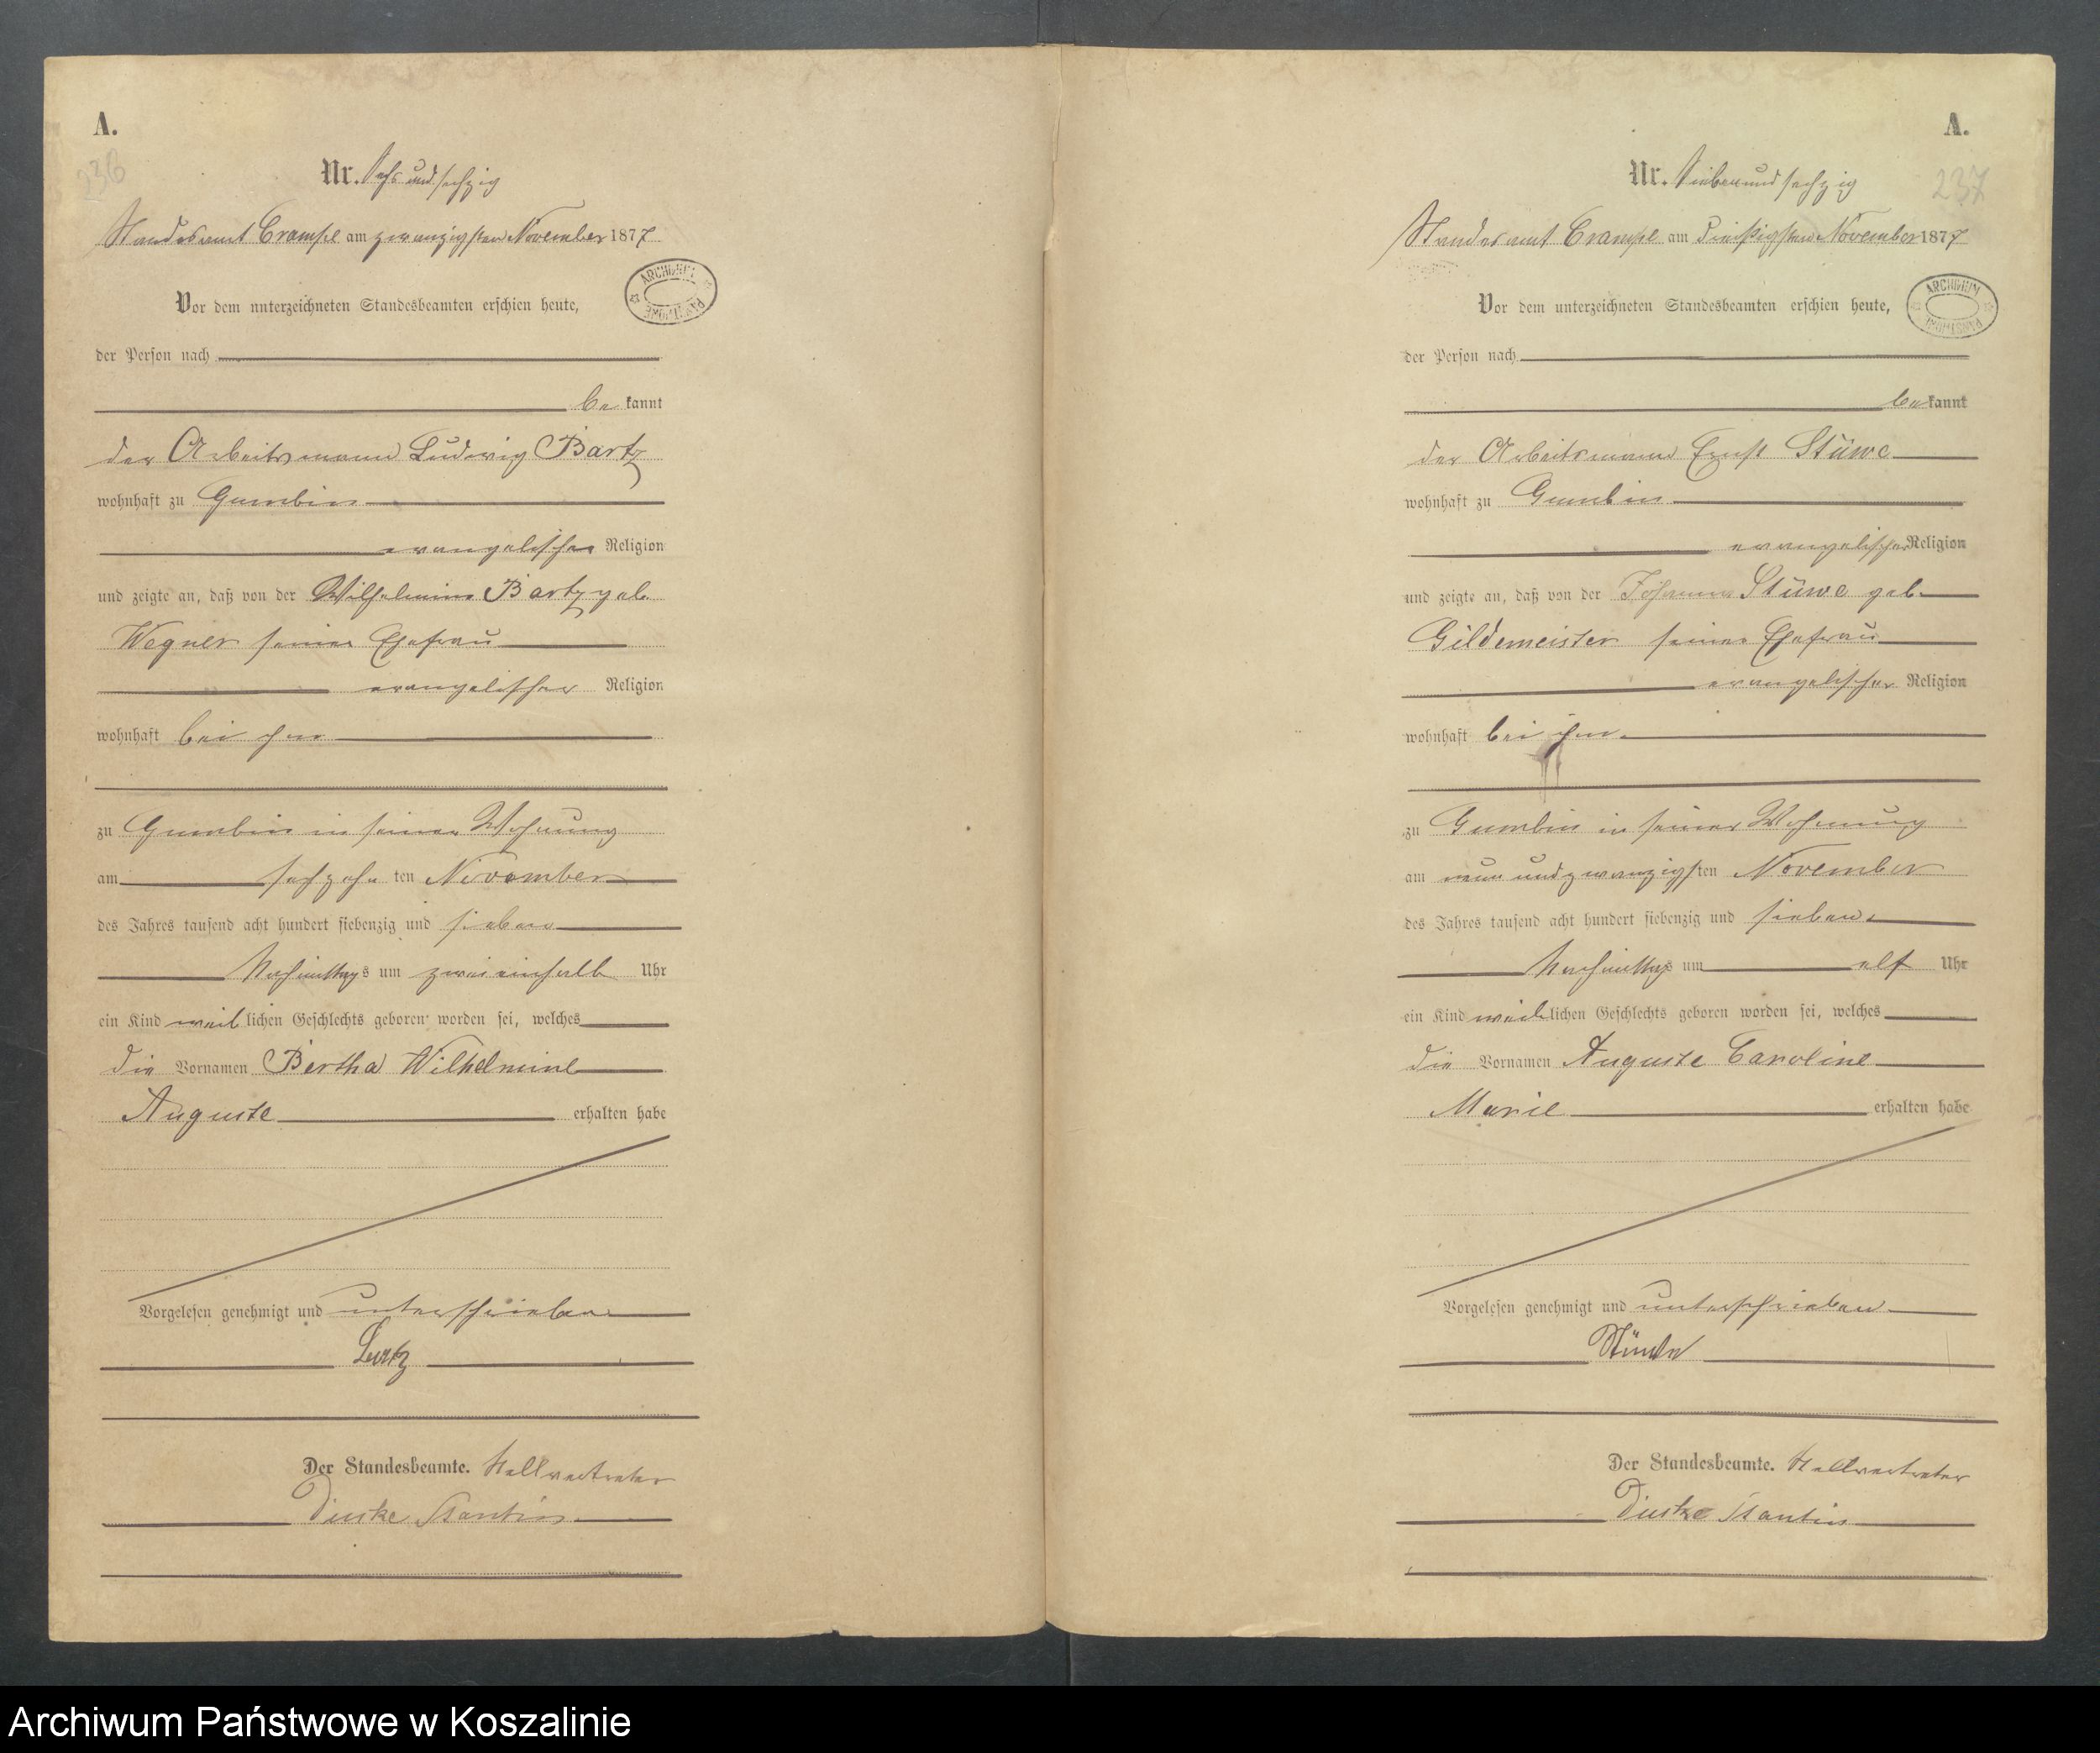 A.
236
Nr. Sechs und sechzig
Standesamt Crampe am zwanzigsten November 1877
ARCHIWUM PAŃSTWOWE
Vor dem unterzeichneten Standesbeamten erschien heute,
der Person nach
be kannt
der Arbeitsmann Ludwig Bartz
wohnhaft zu Gumbin
evangelischer Religion
und zeigte an, daß von der Wilhelmine Bartz geb.
Wegner seiner Ehefrau
evangelischer Religion
wohnhaft bei ihm
zu Gumbin in seiner Wohnung
am sechzehn ten November
des Jahres tausend acht hundert siebenzig und sieben
Nachmittags um zwei einhalb Uhr
ein Kind weib lichen Geschlechts geboren worden sei, welches
die Vornamen Bertha Wilhelmine
Auguste erhalten habe
Vorgelesen genehmigt und unterschrieben
Der Standesbeamte. Stellvertreter
A.
237
Nr. Sieben und sechzig
Standesamt Crampe am dreißigsten November 1877
ARCHIWUM PAŃSTWOWE
Vor dem unterzeichneten Standesbeamten erschien heute,
der Person nach
be kannt
der Arbeitsmann Ernst Stüwe
wohnhaft zu Gumbin
evangelischer Religion
und zeigte an, daß von der Johanna Stüwe geb.
Gildemeister seiner Ehefrau
evangelischer Religion
wohnhaft bei ihm
zu Gumbin in seiner Wohnung
am neun und zwanzigsten November
des Jahres tausend acht hundert siebenzig und sieben
Nachmittags um elf Uhr
ein Kind weib lichen Geschlechts geboren worden sei, welches
die Vornamen Auguste Caroline
Marie erhalten habe
Vorgelesen genehmigt und unterschrieben
Stüwe
Der Standesbeamte. Stellvertreter
Archiwum Państwowe w Koszalinie